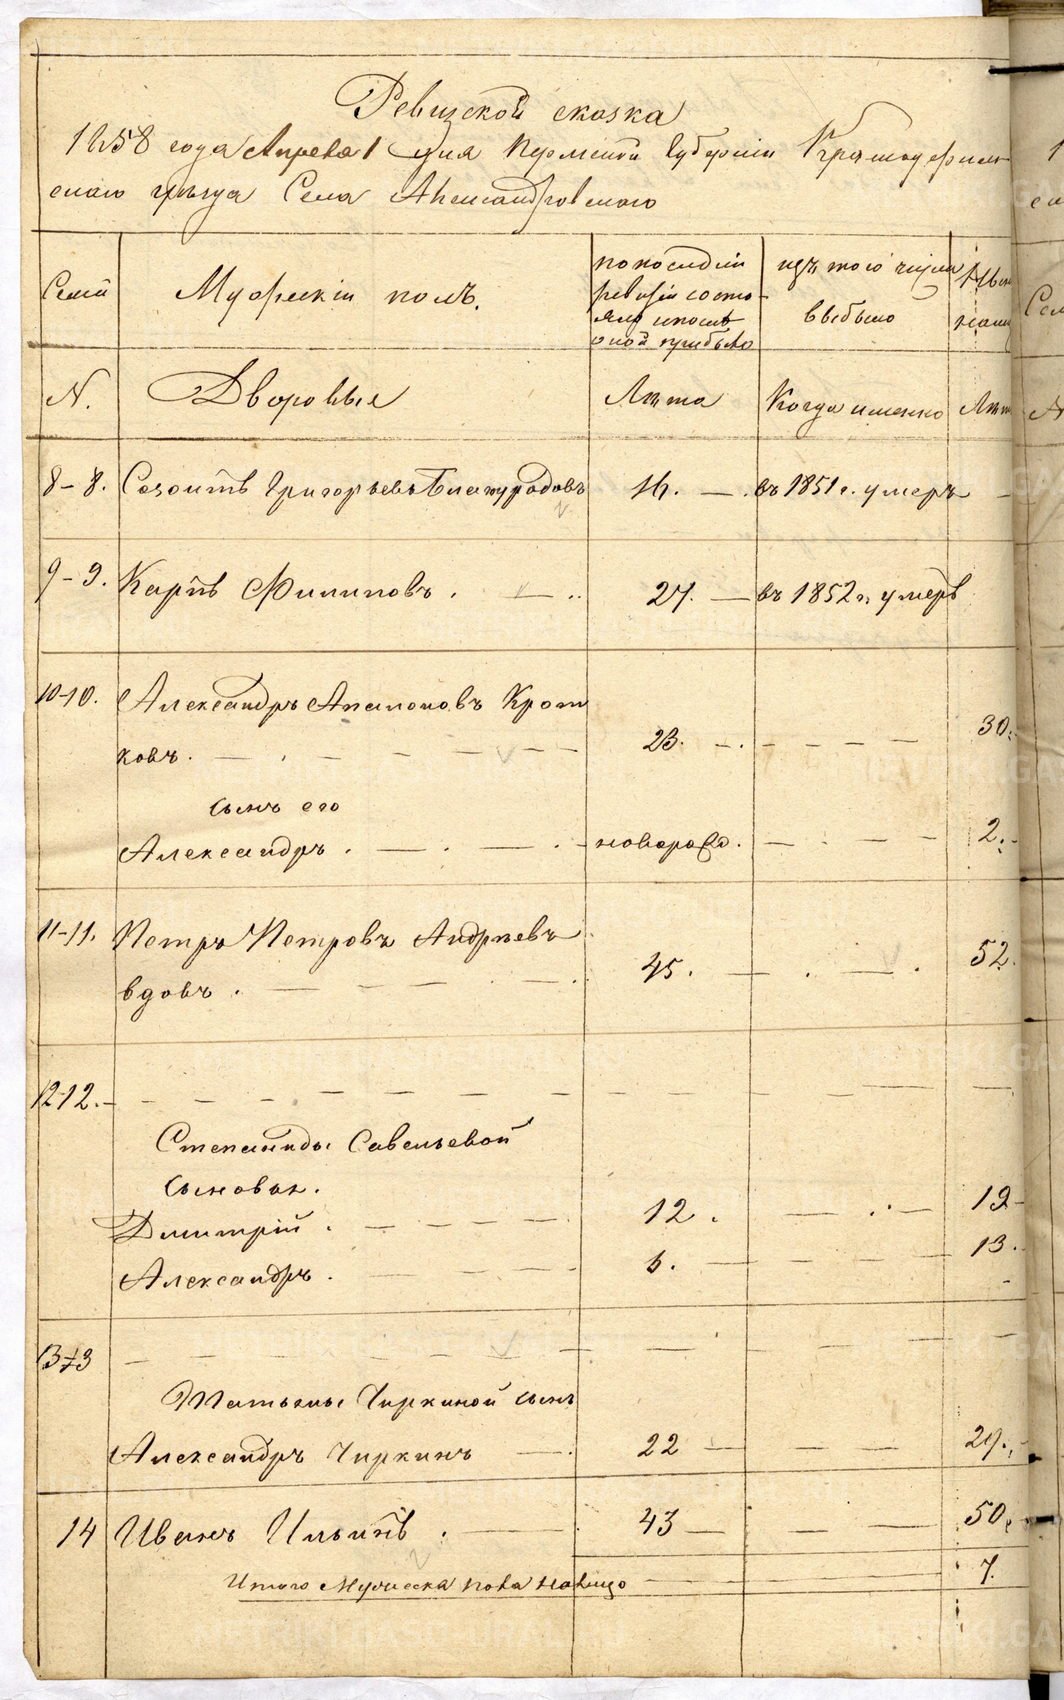 Ревизской сказка
1858 года Апреля 1 дня Пермской Губернии Красноуфим-
скаго уѣзда Села Александровскаго
Семй
Мужескiй полъ.
по послѣдней
ревизiи состо-
яло и послѣ
оной прибыло
изъ того числа
выбыло
Нынѣ
на лиц
N.
Дворовые
Лѣта
Когда именно
Лѣт
8-8. Созонтъ Григорьевъ 16. въ 1851 г. умеръ
9-9. Карпъ Филиповъ. 27. въ 1852 г. умеръ
10-10. Александръ Крот
ковъ. 23. 30.
сынъ его
Александръ. новорожд. 2.
11-11. Петръ Петровъ Андрѣевъ
вдовъ. 45. 52.
12-12.
Степаниды Савельевой
сыновья.
Дмитрiй. 12. 19
Александръ. 6. 13.
13-13
Татьяны Чиркиной сынъ
Александръ Чиркинъ 22 29.
14 Иванъ Ильинъ. 43 50.
Итого Мужеска пола на лицо 7.